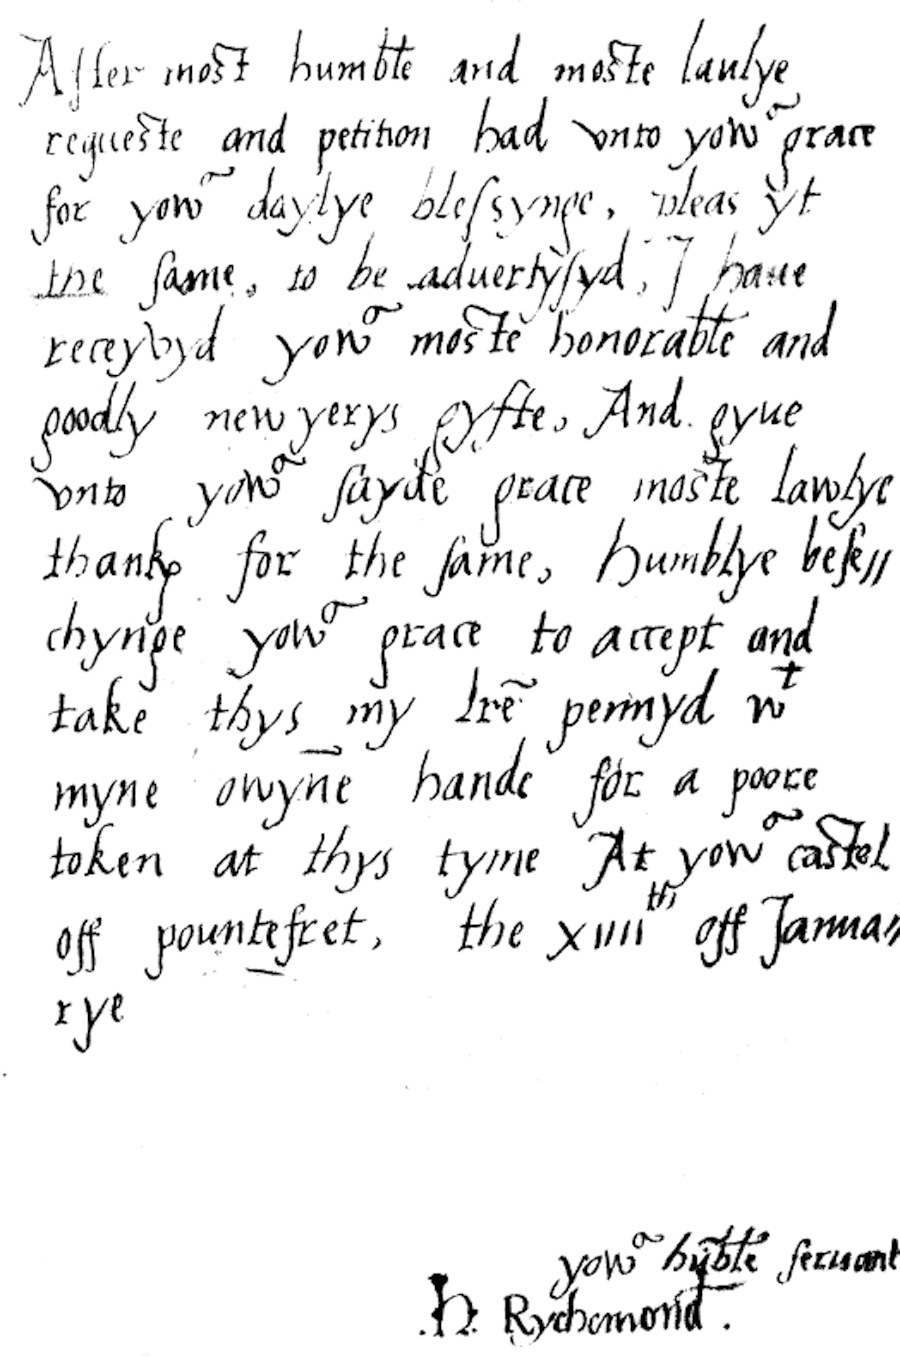 After most humble and moste laulye
requeste and petition had vnto yowr grace
for yowr daylye blessynge, pleas yt
the same, to be aduertysyd, I haue
receyvyd yowr moste honorable and
goodly new yerys gyfte, And gyue
vnto yowr sayde grace moste lawlye
thankꝭ for the same, humblye bese//
chynge yowr grace to accept and
take thys my lr̃e pennyd wt
myne owyne hande for a poore
token at thys tyme At yowr castel
off pountefret, the xiiiith off Janua//
rye
yowr hũble seruant
.h. Rychemond.